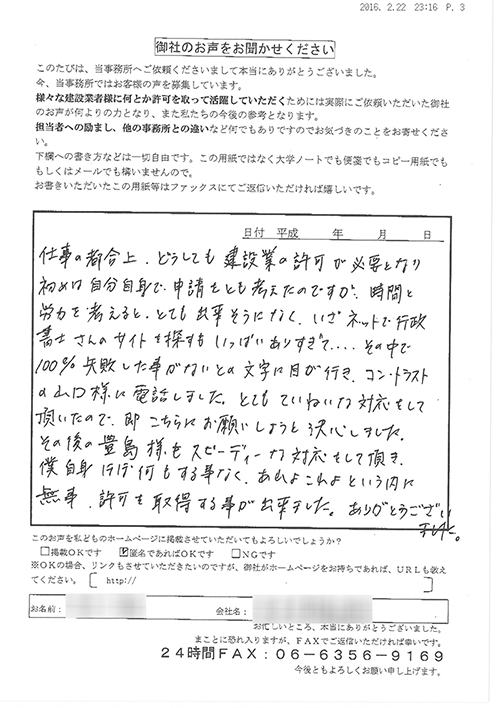 2016. 2.22 23:16 P. 3
御社のお声をお聞かせください
このたびは、当事務所へご依頼くださいまして本当にありがとうございました。
今、当事務所ではお客様の声を募集しています。
様々な建設業者様に何とか許可を取って活躍していただくためには実際にご依頼いただいた御社
のお声が何よりの力となり、また私たちの今後の参考となります。
担当者への励まし、他の事務所との違いなど何でもありですのでお気づきのことをお寄せくださ
い。
下欄への書き方などは一切自由です。この用紙ではなく大学ノートでも便箋でもコピー用紙でも
もしくはメールでも構いませんので。
お書きいただいたこの用紙等はファックスにてご返信いただければ嬉しいです。
日付 平成 年 月 日
仕事の都合上、どうしても建設業の許可が必要となり
初めは自分自身で申請をとも考えたのですが、時間と
労力を考えると、とても出来そうになく、いざネットで行政
書士さんのサイトを探すもいっぱいありすぎて....その中で
100%失敗した事がないとの文字に目が行き、コントラスト
の山口様に電話しました。とてもていねいな対応をして
頂いたので、即こちらにお願いしようと決心しました。
その後の豊島様もスピーディーな対応をして頂き、
僕自身ほぼ何もする事なく、あれよこれよという内に
無事、許可を取得する事が出来ました。ありがとうござい
ました。
このお声を私どものホームページに掲載させていただいてもよろしいでしょうか?
□掲載OKです ☑匿名であればOKです □NGです
※OKの場合、リンクもさせていただきたいのですが、御社がホームページをお持ちであれば、URLも教え
てください。〔 http:// 〕
お名前: 会社名:
お忙しいところ、本当にありがとうございました。
まことに恐れ入りますが、FAXでご返信いただければ幸いです。
24時間FAX:06-6356-9169
今後ともよろしくお願い申し上げます。